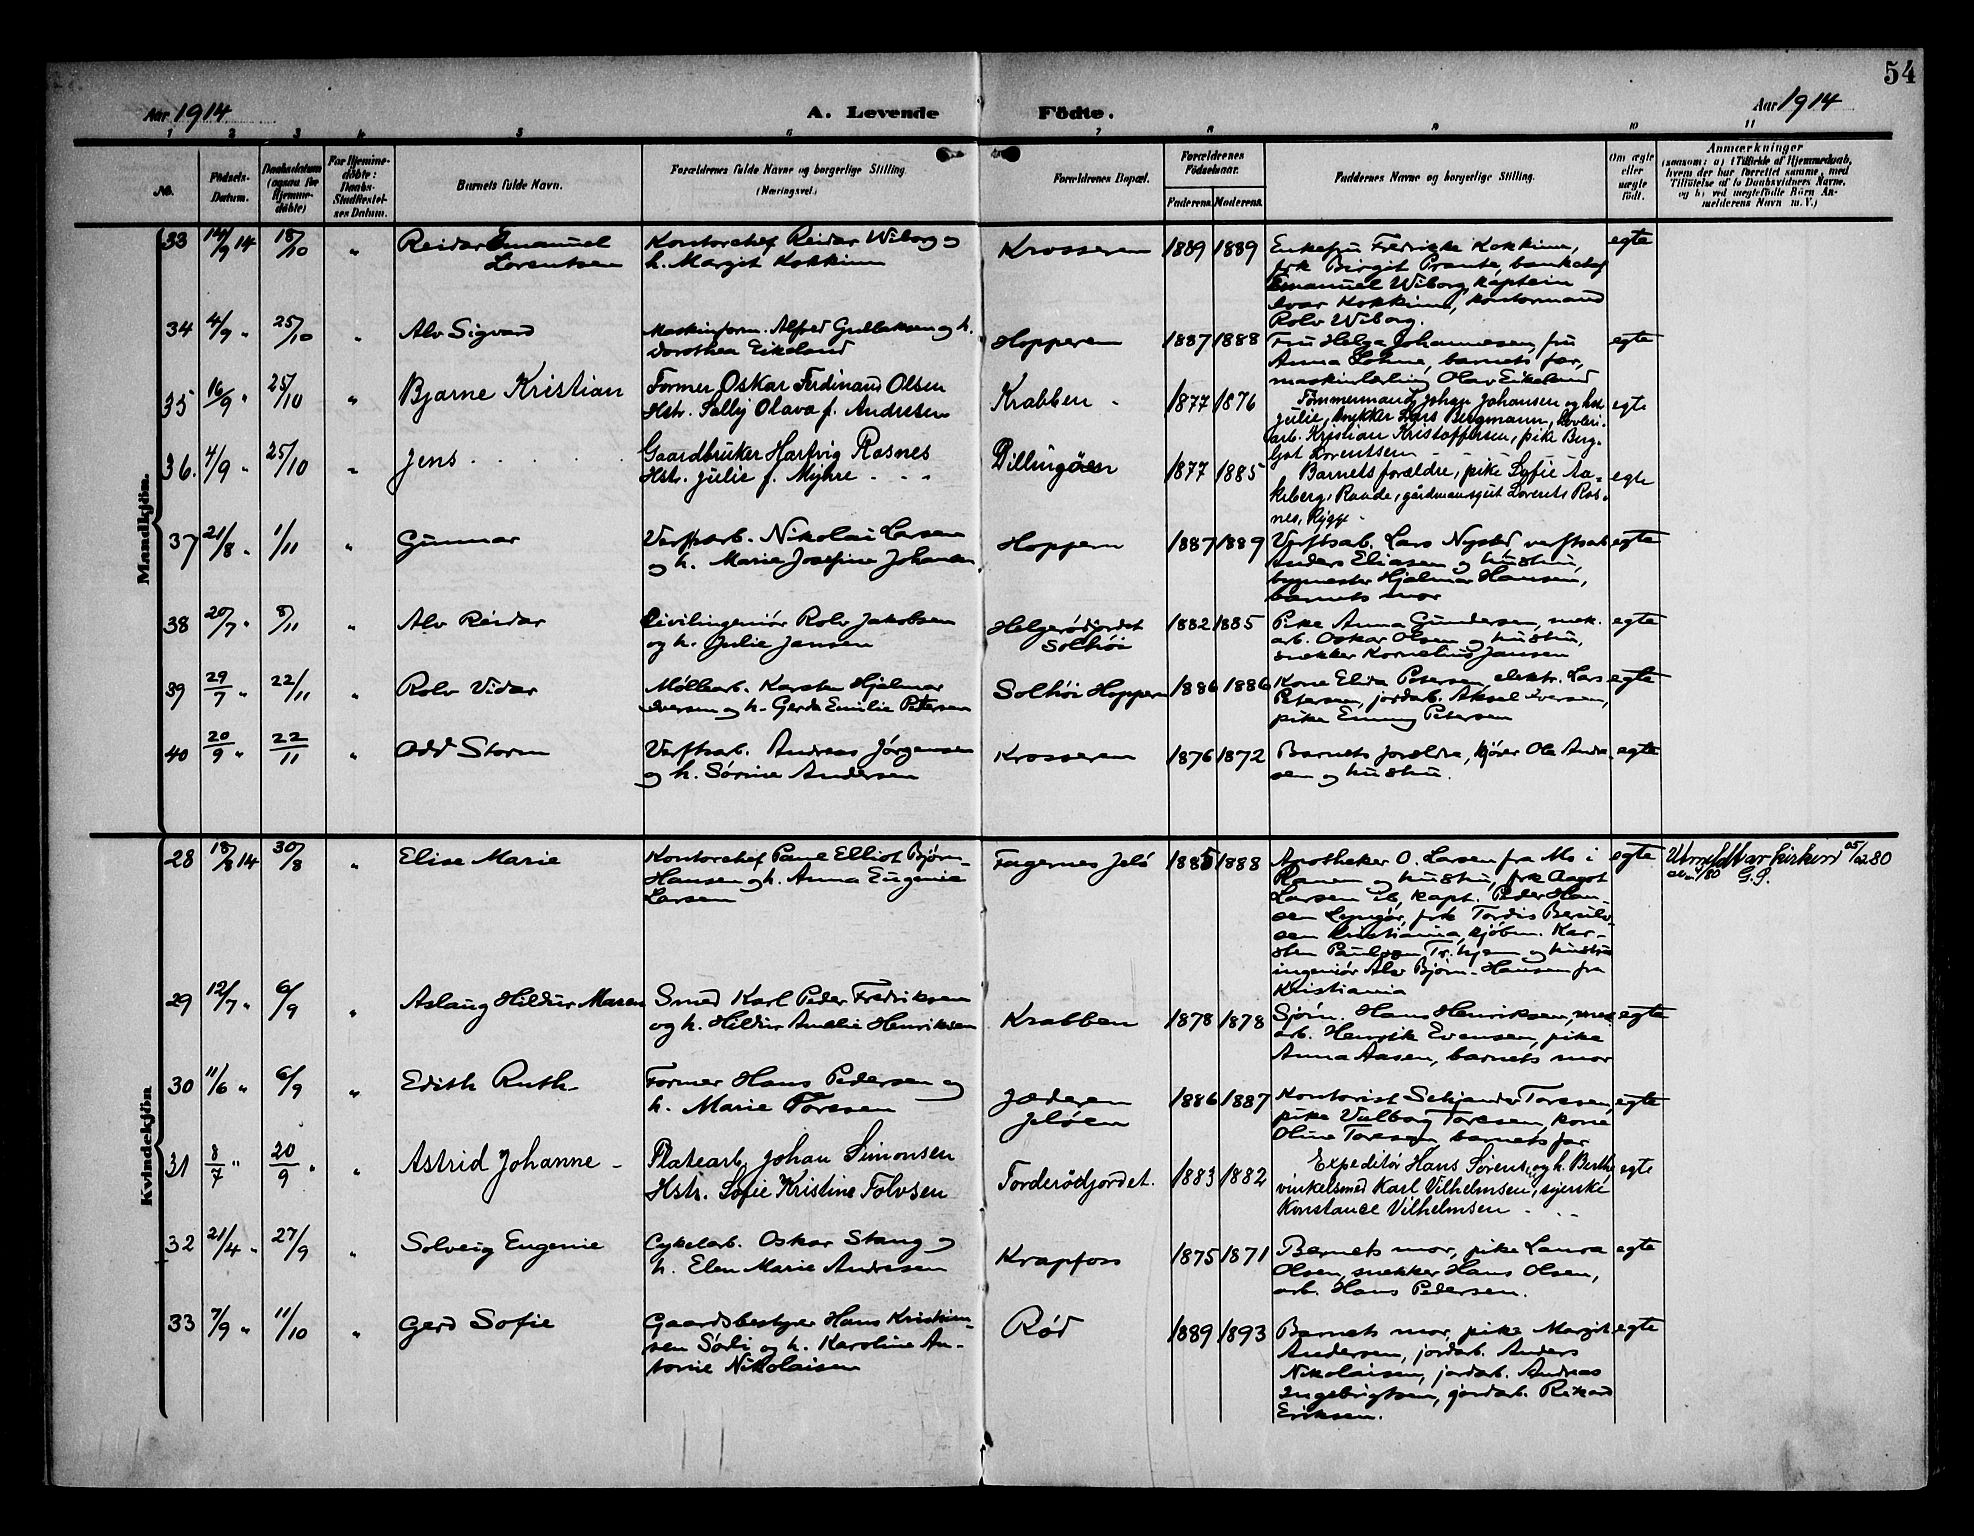 54
Aar 1914
A. Levende Födte.
Aar 1914
1 2 3 4 5 6 7 8 9 10 11
No.
Födsels-
Datum.
Daabsdatum
(ogsaa for
Hjemme-
döbte)
For Hjemme-
döbte:
Daabs-
Stadfæstel-
ses Datum.
Barnets fulde Navn.
Forældrenes fulde Navne og borgerlige Stilling.
(Næringsvei.)
Forældrenes Bopæl.
Forældrenes
Födselsaar.
Faderens. Moderens.
Faddernes Navne og borgerlige Stilling.
Om ægte
eller
uægte
født.
Anmærkninger
(saasom: a) i Tilfælde af Hjemmedaab,
hvem der har forrettet samme, med
Tilføielse af to Daabsvidners Navne,
og b) ved uægtefödte Börn An-
melderens Navn m. V.)
Mandkjön.
33 14/9 14 18/10 " Reidar Emanuel
Lorentsen
Kontorchef Reidar Wiborg og
h. Margit Kokkinn
Krosseren 1889 1889
Enkefru Fredrikke Kokkinn,
frk Birgit Prante, bankchef
Emanuel Wiborg, kaptein
Ivar Kokkinn, kontormand
Rolv Wiborg.
egte
34 4/9 " 25/10 " Alv Sigvard
Maskinform. Alfred Gullaksen og h.
Dorothea Eikeland
Hopperen 1887 1888
Fru Helga Johannesen, fru
Anna Lohne, barnets far,
maskinlærling Olav Eikeland
egte
35 16/9 " 25/10 " Bjarne Kristian
Former Oskar Ferdinand Olsen
Hstr. Selly Olava f. Andresen
Krabben 1877 1876
Tømmermand Johan Johansen og hstr
Julie, snekker Lars Bergmann,
arb. Kristian Kristoffersen, pike Berg-
ljot Lorentsen
egte
36. 4/9 " 25/10 " Jens
Gaardbruker Hartvig Rosnes
Hstr. Julie f. Myhre
Dillingöen 1877 1885
Barnets forældre, pike Sofie Aa-
keberg, Raade, gårdmansgut Lorents Ros-
nes, Rygge
egte
37 21/8 " 1/11 " Gunnar
Verftsarb. Nikolai Larsen
og h. Marie Josefine Johansen
Hoppern 1887 1889
Verftsab. Lars Nysted verftsab
Anders Eliasen og hustru,
bygmester Hjalmar Hansen,
barnets mor
egte
38 20/7 " 8/11 " Alv Reidar
Civilingeniör Rolv Jakobsen
og h. Julie Jansen
Helgerödjordet
Solhöi
1882 1885
Pike Anna Gundersen, mek.
arb. Oskar Olsen og hustru,
snekker Kornelius Jansen
egte
39 29/7 " 22/11 " Rolv Vidar
Möllearb. Karsten Hjalmar
Iversen og h. Gerda Emilie Petersen
Solhöi Hoppern 1886 1886
Kone Elida Petersen, elektr. Lars
Petersen, jordarb. Aksel Iversen,
pike Emmy Petersen
egte
40 20/9 " 22/11 " Odd Storm
Verftsarb. Andreas Jörgensen
og h. Sörine Andersen
Krosseren 1876 1872
Barnets forældre, kjörer Ole Andre-
sen og hustru.
egte
Kvindekjön
28 18/8 14 30/8 " Elise Marie
Kontorchef Paul Elliot Björn-
Hansen og h. Anna Eugenie
Larsen
Fagernes Jelö 1885 1888
Apotheker O. Larsen fra Mo i
Ranen og hustru, frk Aagot
Larsen ib, kapt. Peder Han-
sen Lyngör, frk Tordis
Kristiania, kjöbm. Kar-
sten Paulsen Tr.hjem og hustru
ingeniör Alv Björn-Hansen fra
Kristiania
egte
Utmeldt av kirken
G.S.
29 12/7 " 6/9 " Aslaug Hildur Maren
Smed Karl Peder Fredriksen
og h. Hildur Amalie Henriksen
Krabben 1878 1878
Sjöm. Hans Henriksen, mek
arb. Henrik Evensen, pike
Anna Aasen, barnets mor
egte
30 11/6 " 6/9 " Edith Ruth
Former Hans Pedersen og
h. Marie Toresen
Jæderen
Jelöen
1886 1887
Kontorist Toresen,
pike Valborg Toresen, kone
Oline Toresen, barnets far
egte
31 8/7 " 20/9 " " Astrid Johanne
Platearb. Johan Simonsen
Hstr. Sofie Kristine Tolvsen
Torderödjordet. 1883 1882
Expeditör Hans Sörens. og h. Berth
vinkelsmed Karl Vilhelmsen, syerske
Konstance Vilhelmsen
egte
32 21/4 " 27/9 " Solveig Eugenie
Cykelarb. Oskar Stang og
h. Elen Marie Andresen
Krapfoss 1875 1871
Barnets mor, pike Laura
Olsen, snekker Hans Olsen,
arb. Hans Pedersen.
egte
33 7/9 " 11/10 " Gerd Sofie
Gaardsbestyrer Hans Kristian-
sen Sörli og h. Karoline An-
tonie Nikolaisen
Rød 1889 1893
Barnets mor, pike Margit
Andersen, jordarb. Anders
Nikolaisen, jordarb. Andreas
Ingebrigtsen, jordarb. Rikard
Eriksen.
egte